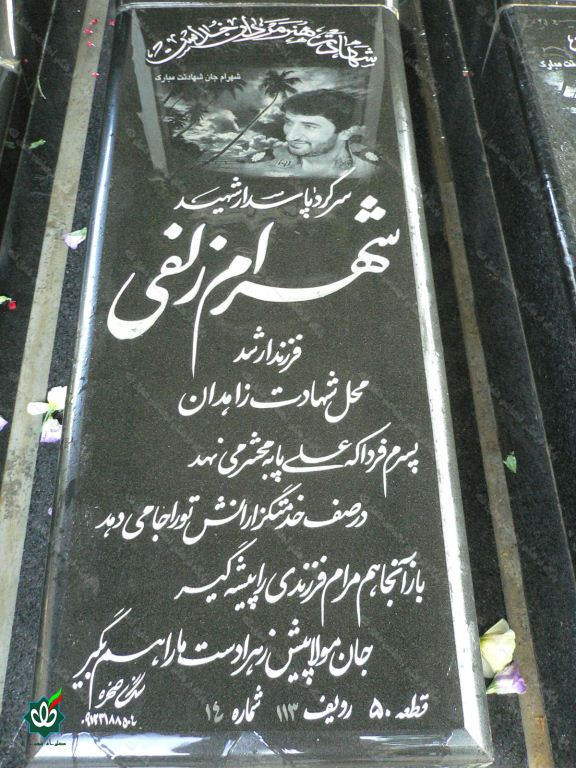 شهادت هنر مردان خداست
شهرام جان شهادتت مبارک
سرگرد پاسدار شهید
شهرام زلفی
فرزند ارشد
محل شهادت زاهدان
پسرم فردا که علی پا به محشر می نهد
در صف خدمتگزارانش تو را جا می دهد
باز آنجا هم مرام فرزندی را پیشه گیر
جان مولا پیش زهرا دست ما را هم بگیر
قطعه ۵۰ ردیف ۱۱۳ شماره ۱۴